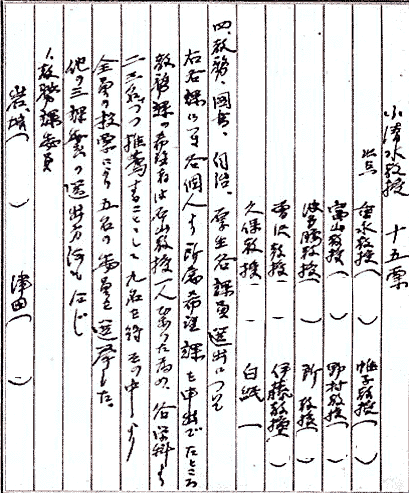 小清水教授 十五票
次点 金水教授( ) 帷子教授( )
富山教授( ) 野村教授( )
波多腰教授( ) 所教授( )
曽沢教授( 一 ) 伊藤教授( )
久保教授( 一 ) 白紙 一
四、教務、図書、自治、厚生各課員選出について
右各課につき各個人より所属希望課を申出でたところ
教務課の希望者は 山教授一人であった為め、各学科より
二、三名づつ推薦することとして九名を 、その中より
全員の投票により五名の委員を選挙した。
他の三課委員の選出方法も同じ
1、教務課委員
岩城( ) 津田( 一 )